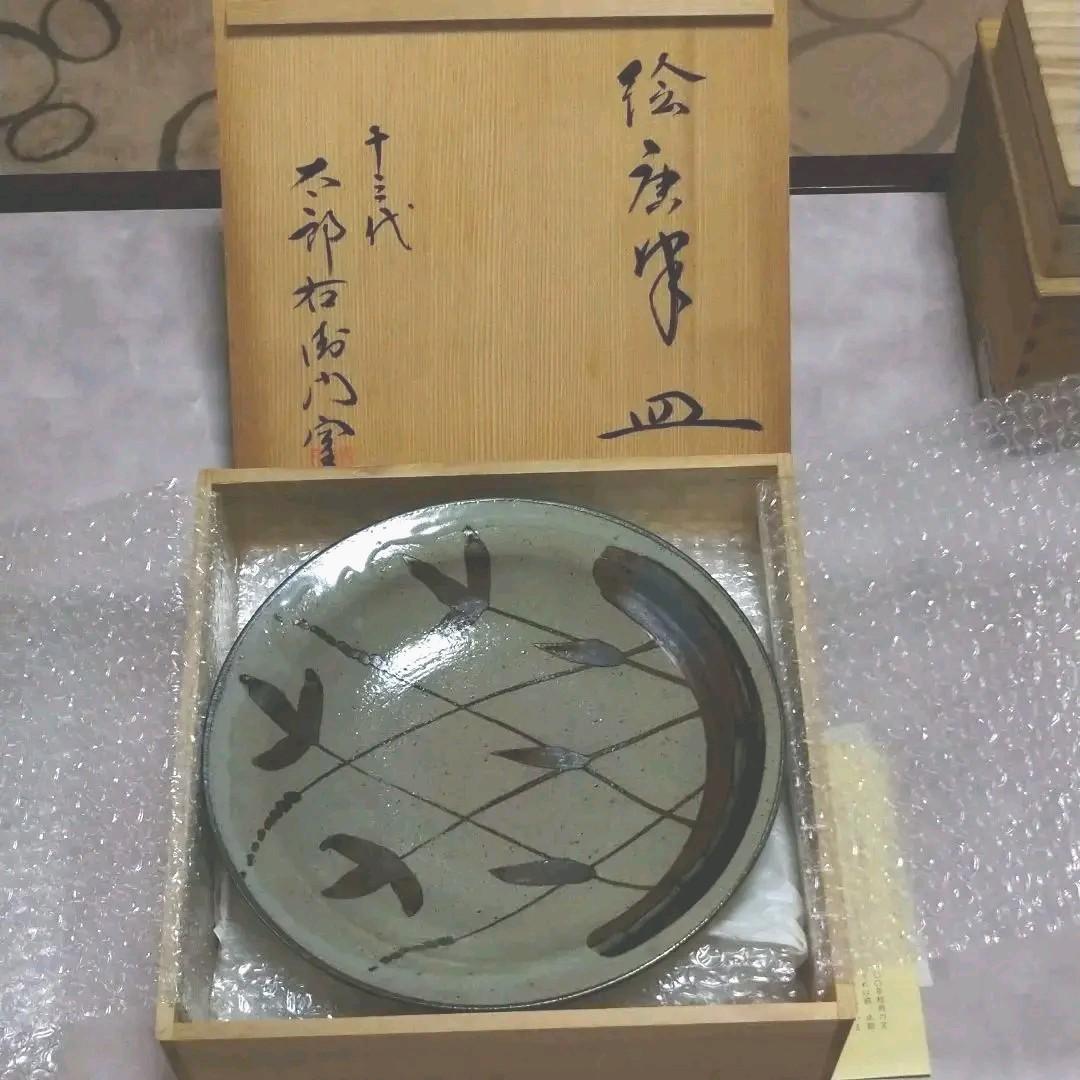 絵唐津 皿
十三代
太郎右衛門窯